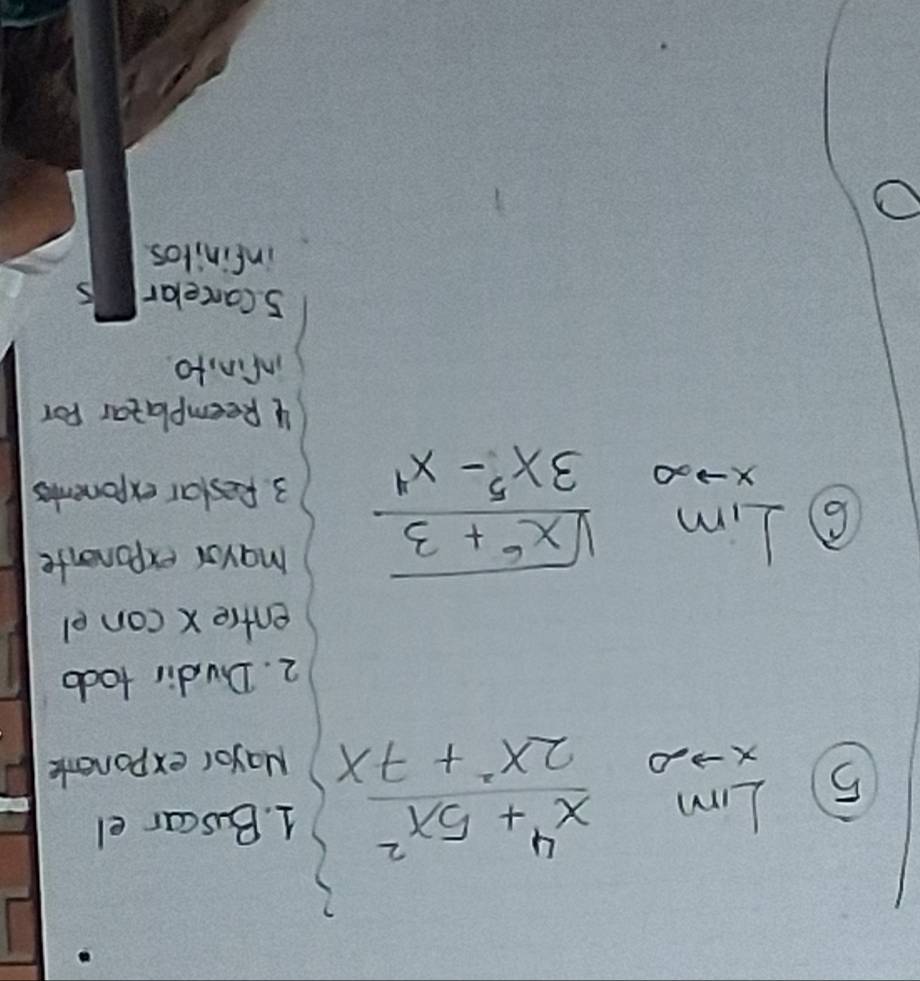 ⑤ Lim x→∞ (x⁴ + 5x²) / (2x² + 7x)
⑥ Lim x→∞ √(x⁶ + 3) / (3x⁵ - x⁴)
1. Buscar el
Mayor exponente
2. Dividir todo
entre x con el
mayor exponente
3. Restar exponentes
4 Reemplazar por
infinito.
5. Cancelar
infinitos.